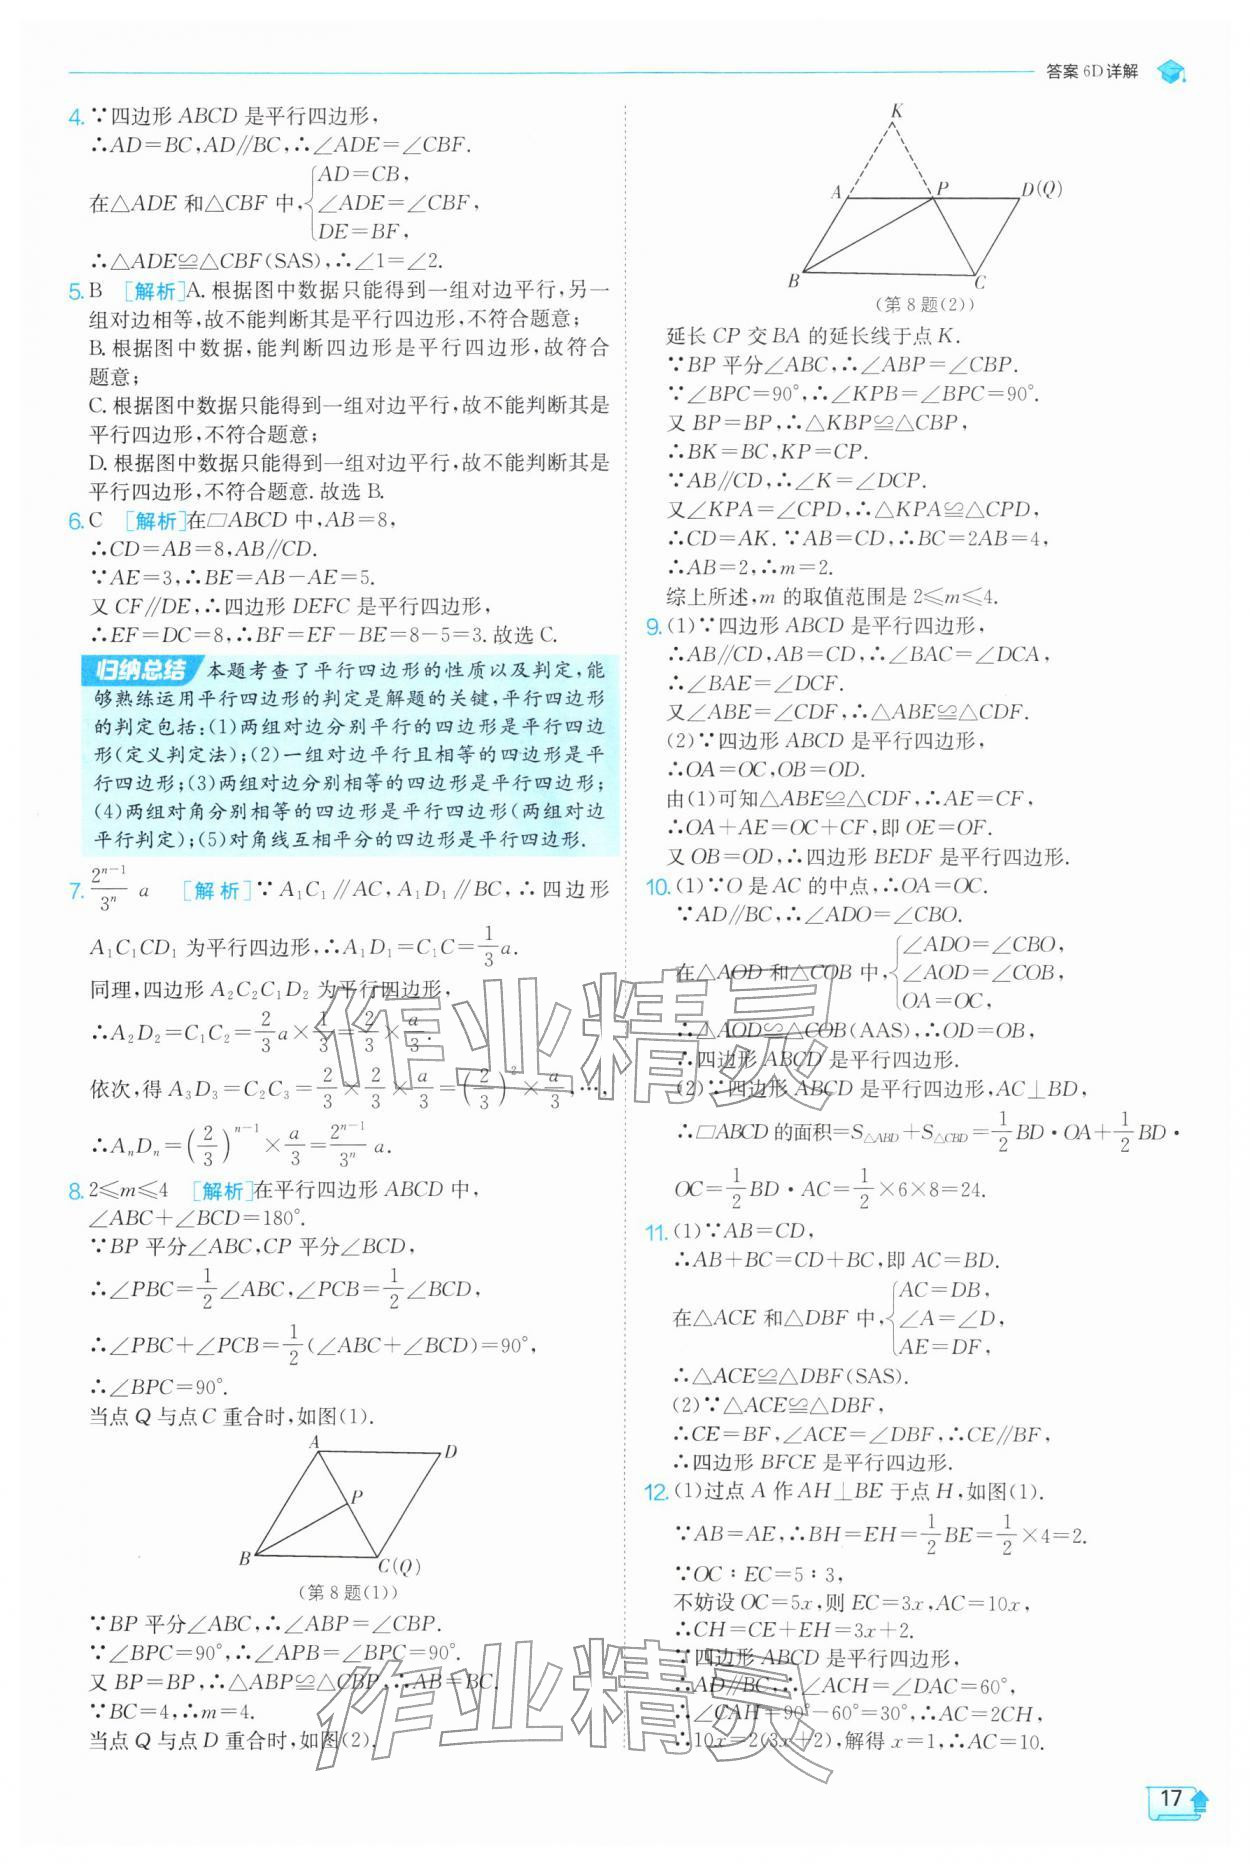 答案 6D详解
4. ∵四边形 ABCD 是平行四边形,
∴AD=BC,AD∥BC,∴∠ADE=∠CBF.
在△ADE 和△CBF 中,{AD=CB,
∠ADE=∠CBF,
DE=BF,
∴△ADE≌△CBF(SAS),∴∠1=∠2.
5. B [解析]A. 根据图中数据只能得到一组对边平行,另一
组对边相等,故不能判断其是平行四边形,不符合题意;
B. 根据图中数据,能判断四边形是平行四边形,故符合
题意;
C. 根据图中数据只能得到一组对边平行,故不能判断其是
平行四边形,不符合题意;
D. 根据图中数据只能得到一组对边平行,故不能判断其是
平行四边形,不符合题意. 故选 B.
6. C [解析]在□ABCD 中,AB=8,
∴CD=AB=8,AB∥CD.
∵AE=3,∴BE=AB-AE=5.
又 CF∥DE,∴四边形 DEFC 是平行四边形,
∴EF=DC=8,∴BF=EF-BE=8-5=3. 故选 C.
归纳总结 本题考查了平行四边形的性质以及判定,能
够熟练运用平行四边形的判定是解题的关键,平行四边形
的判定包括:(1)两组对边分别平行的四边形是平行四边
形(定义判定法);(2)一组对边平行且相等的四边形是平
行四边形;(3)两组对边分别相等的四边形是平行四边形;
(4)两组对角分别相等的四边形是平行四边形(两组对边
平行判定);(5)对角线互相平分的四边形是平行四边形.
7. 2ⁿ⁻¹/3ⁿ a [解析]∵A₁C₁∥AC,A₁D₁∥BC,∴四边形
A₁C₁CD₁ 为平行四边形,∴A₁D₁=C₁C=1/3 a.
同理,四边形 A₂C₂C₁D₂ 为平行四边形,
∴A₂D₂=C₁C₂=2/3 a×1/3=2/3×a/3.
依次,得 A₃D₃=C₂C₃=2/3×2/3×a/3=(2/3)²×a/3,…,
∴AₙDₙ=(2/3)ⁿ⁻¹×a/3=2ⁿ⁻¹/3ⁿ a.
8. 2≤m≤4 [解析]在平行四边形 ABCD 中,
∠ABC+∠BCD=180°.
∵BP 平分∠ABC,CP 平分∠BCD,
∴∠PBC=1/2∠ABC,∠PCB=1/2∠BCD,
∴∠PBC+∠PCB=1/2(∠ABC+∠BCD)=90°,
∴∠BPC=90°.
当点 Q 与点 C 重合时,如图(1).
A
D
P
B
C(Q)
(第 8 题(1))
∵BP 平分∠ABC,∴∠ABP=∠CBP.
∵∠BPC=90°,∴∠APB=∠BPC=90°.
又 BP=BP,∴△ABP≌△CBP,∴AB=BC.
∵BC=4,∴m=4.
当点 Q 与点 D 重合时,如图(2).
K
A
P
D(Q)
B
C
(第 8 题(2))
延长 CP 交 BA 的延长线于点 K.
∵BP 平分∠ABC,∴∠ABP=∠CBP.
∵∠BPC=90°,∴∠KPB=∠BPC=90°.
又 BP=BP,∴△KBP≌△CBP,
∴BK=BC,KP=CP.
∵AB∥CD,∴∠K=∠DCP.
又∠KPA=∠CPD,∴△KPA≌△CPD,
∴CD=AK. ∵AB=CD,∴BC=2AB=4,
∴AB=2,∴m=2.
综上所述,m 的取值范围是 2≤m≤4.
9. (1)∵四边形 ABCD 是平行四边形,
∴AB∥CD,AB=CD,∴∠BAC=∠DCA,
∴∠BAE=∠DCF.
又∠ABE=∠CDF,∴△ABE≌△CDF.
(2)∵四边形 ABCD 是平行四边形,
∴OA=OC,OB=OD.
由(1)可知△ABE≌△CDF,∴AE=CF,
∴OA+AE=OC+CF,即 OE=OF.
又 OB=OD,∴四边形 BEDF 是平行四边形.
10. (1)∵O 是 AC 的中点,∴OA=OC.
∵AD∥BC,∴∠ADO=∠CBO.
在△AOD 和△COB 中,{∠ADO=∠CBO,
∠AOD=∠COB,
OA=OC,
∴△AOD≌△COB(AAS),∴OD=OB,
∴四边形 ABCD 是平行四边形.
(2)∵四边形 ABCD 是平行四边形,AC⊥BD,
∴□ABCD 的面积=S△ABD+S△CBD=1/2 BD·OA+1/2 BD·
OC=1/2 BD·AC=1/2×6×8=24.
11. (1)∵AB=CD,
∴AB+BC=CD+BC,即 AC=BD.
在△ACE 和△DBF 中,{AC=DB,
∠A=∠D,
AE=DF,
∴△ACE≌△DBF(SAS).
(2)∵△ACE≌△DBF,
∴CE=BF,∠ACE=∠DBF,∴CE∥BF,
∴四边形 BFCE 是平行四边形.
12. (1)过点 A 作 AH⊥BE 于点 H,如图(1).
∵AB=AE,∴BH=EH=1/2 BE=1/2×4=2.
∵OC∶EC=5∶3,
不妨设 OC=5x,则 EC=3x,AC=10x,
∴CH=CE+EH=3x+2.
∵四边形 ABCD 是平行四边形,
∴AD∥BC,∴∠ACH=∠DAC=60°,
∴∠CAH=90°-60°=30°,∴AC=2CH,
∴10x=2(3x+2),解得 x=1,∴AC=10.
作业精灵
作业精灵
17